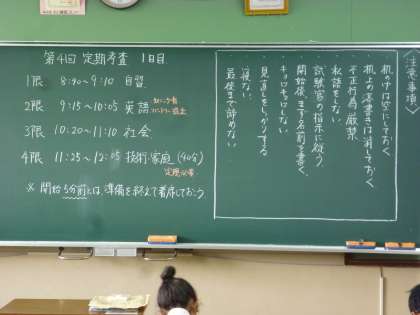 第4回 定期考査 1日目
1限 8:40～9:10 自習
2限 9:15～10:05 英語
3限 10:20～11:10 社会
4限 11:25～12:05 技術・家庭 (40分)
※ 開始5分前には、準備を終えて着席しておこう
〈注意事項〉
机の中は空にしておく
机上の落書きは消しておく
不正行為 厳禁
私語をしない
試験官の指示に従う
開始後、まず名前を書く
キョロキョロしない
見直しをしっかりする
寝ない
最後まで諦めない